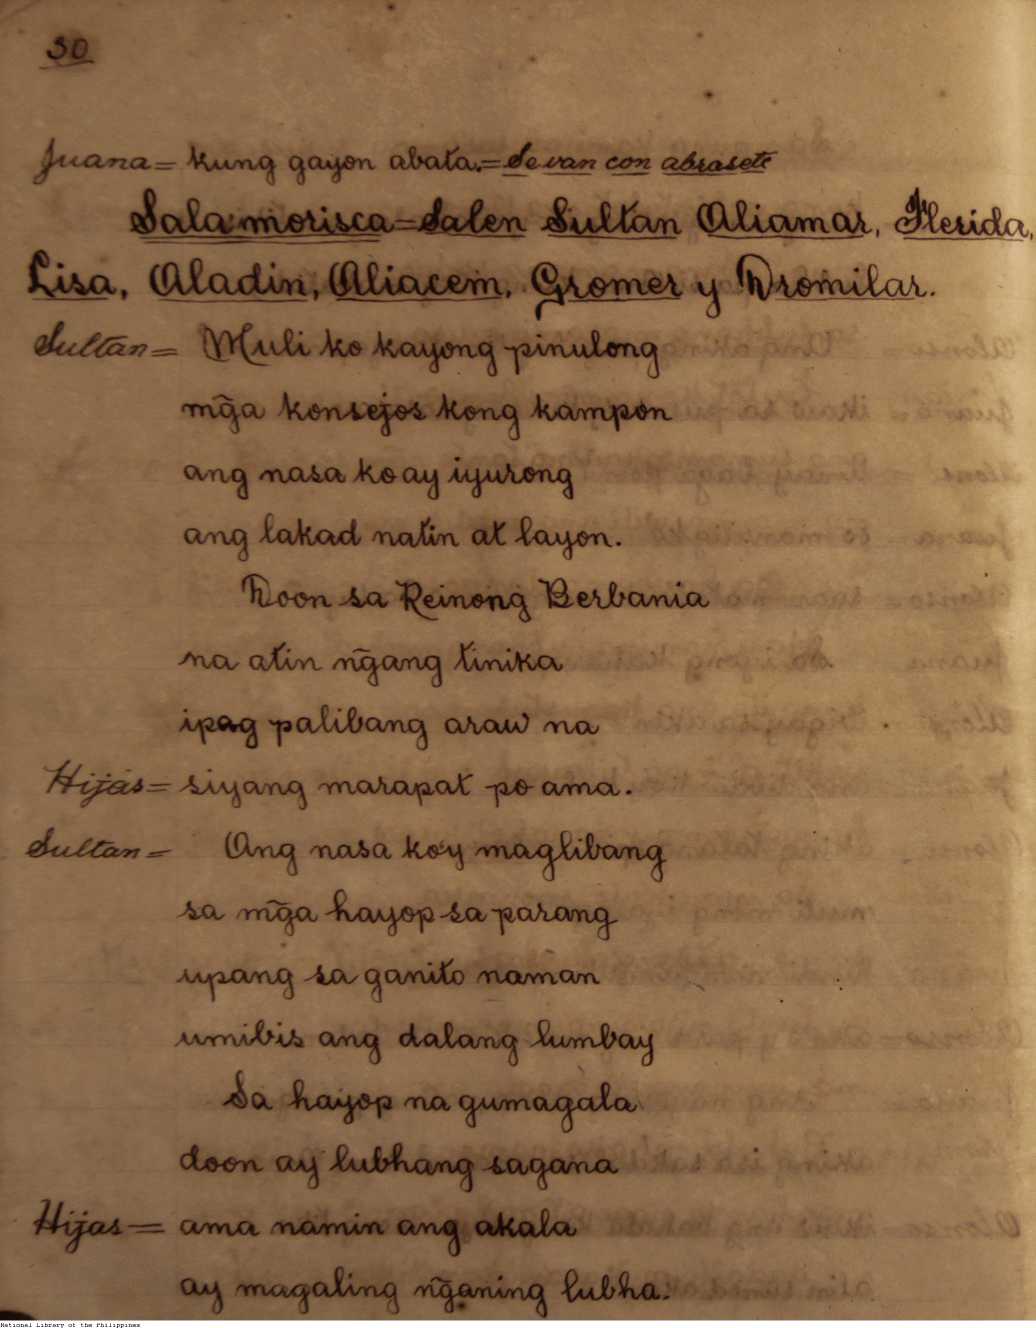 30
Juana = kung gayon abata. = Se van con abrasete
Sala morisca = Salen Sultan Aliamar, Flerida,
Lisa, Aladin, Aliacem, Gromer y Dromilar.
Sultan = Muli ko kayong pinulong
mg̃a konsejos kong kampon
ang nasa ko ay iyurong
ang lakad natin at layon.
Doon sa Reinong Berbania
na atin ng̃ang tinika
ipag palibang araw na
Hijas = siyang marapat po ama.
Sultan = Ang nasa ko'y maglibang
sa mg̃a hayop sa parang
upang sa ganito naman
umibis ang dalang lumbay
Sa hayop na gumagala
doon ay lubhang sagana
Hijas = ama namin ang akala
ay magaling ng̃aning lubha.
National Library of the Philippines